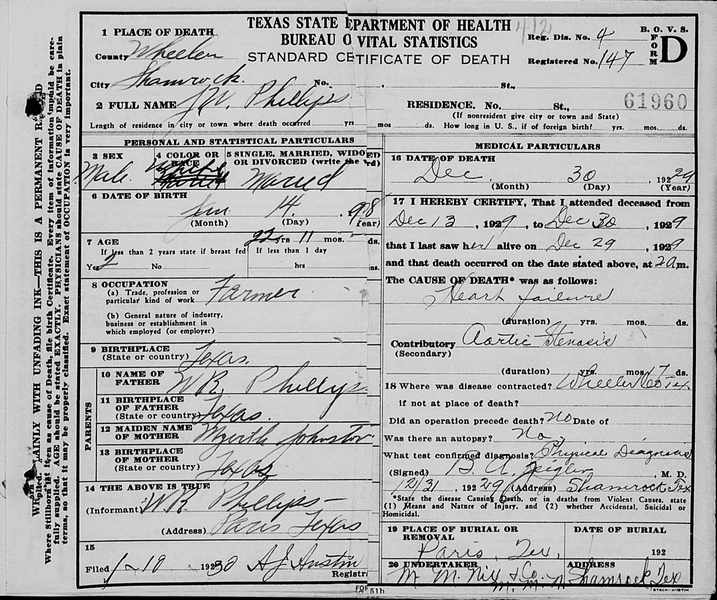 TEXAS STATE DEPARTMENT OF HEALTH
BUREAU OF VITAL STATISTICS
STANDARD CERTIFICATE OF DEATH
412
Reg. Dis. No. 4
Registered No. 147
B. O. V. S.
FORM D
1 PLACE OF DEATH
County Wheeler
City Shamrock No. St.,
61960
2 FULL NAME Phillips
RESIDENCE. No. St.,
(If nonresident give city or town and State)
Length of residence in city or town where death occurred yrs. mos ds. How long in U. S., if of foreign birth? yrs. mos. ds.
WRITE PLAINLY WITH UNFADING INK—THIS IS A PERMANENT RECORD
Every item of information should be carefully supplied. AGE should be stated EXACTLY. PHYSICIANS should state CAUSE OF DEATH in plain terms, so that it may be properly classified. Exact statement of OCCUPATION is very important.
PERSONAL AND STATISTICAL PARTICULARS
3 SEX
Male
4 COLOR OR RACE
White
5 SINGLE, MARRIED, WIDOWED OR DIVORCED (write the word)
Maried
6 DATE OF BIRTH
Jan 14, 908
(Month) (Day) (Year)
7 AGE
If less than 2 years state if breast fed
If less than 1 day
Yes No hrs
11 mos
8 OCCUPATION
(a) Trade, profession or particular kind of work Farmer
(b) General nature of industry, business or establishment in which employed (or employer)
9 BIRTHPLACE
(State or country) Texas
PARENTS
10 NAME OF FATHER W R Phillips
11 BIRTHPLACE OF FATHER
(State or country) Texas.
12 MAIDEN NAME OF MOTHER Myrtle Johnston
13 BIRTHPLACE OF MOTHER
(State or country) Texas
14 THE ABOVE IS TRUE
(Informant) W R Phillips
(Address) Paris Texas
15
Filed 1-10 1930 A J Austin
Registrar
MEDICAL PARTICULARS
16 DATE OF DEATH
Dec. 30 1929
(Month) (Day) (Year)
17 I HEREBY CERTIFY, That I attended deceased from
Dec 13, 1929, to Dec 30, 1929
that I last saw him alive on Dec 29, 1929
and that death occurred on the date stated above, at 2 a m.
The CAUSE OF DEATH* was as follows:
Heart failure
(duration) yrs. mos. ds.
Contributory Aortic Stenosis
(Secondary)
(duration) yrs. mos. 17 ds.
18 Where was disease contracted? Wheeler Co Tex
if not at place of death?
Did an operation precede death? No Date of
Was there an autopsy? No
What test confirmed diagnosis? Physical Diagnosis
(Signed) Zeigler, M. D.
12/31, 1929 (Address) Shamrock Tex
*State the disease Causing Death, or in deaths from Violent Causes, state (1) Means and Nature of Injury, and (2) whether Accidental, Suicidal or Homicidal.
19 PLACE OF BURIAL OR REMOVAL
Paris, Tex,
DATE OF BURIAL
192
20 UNDERTAKER
M. M. Nix & Co.
ADDRESS
Shamrock Tex